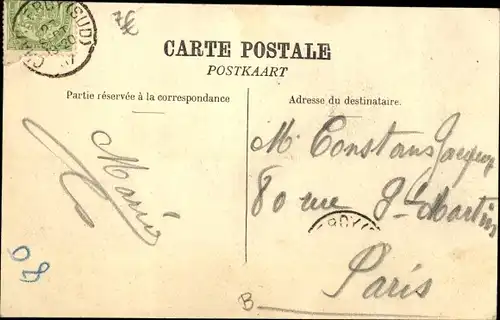 7fc
CARTE POSTALE
POSTKAART
Partie réservée à la correspondance
Adresse du destinataire.
Marie
M. Constans Jacques
80 rue St Martin
Paris
B